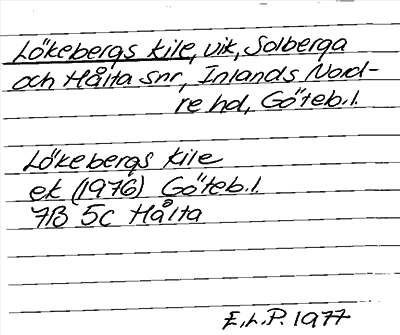 Lökebergs kile, vik, Solberga
och Hålta snr, Inlands Nord-
re hd, Göteb. l.
Lökebergs kile
ek (1976) Göteb. l.
7B 5c Hålta
E.L.P. 1977